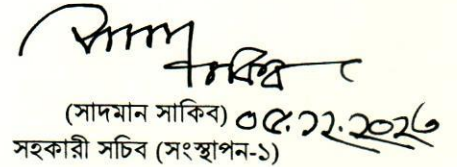 (সাদমান সাকিব) ০৫.১২.২০২৩
সহকারী সচিব (সংস্থাপন-১)